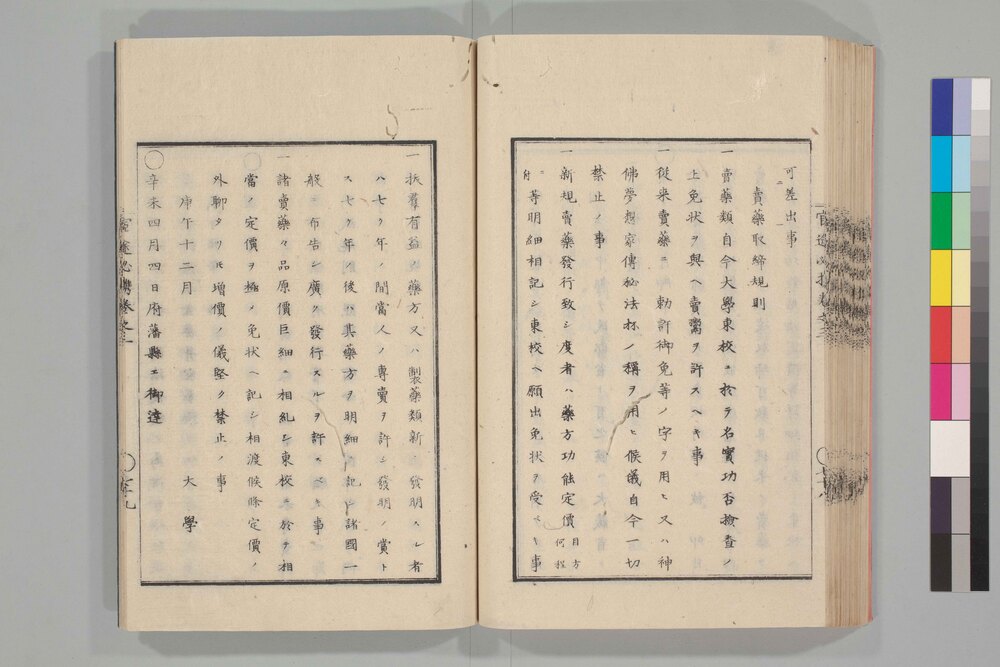 可差出事
賣藥取締規則
一賣藥類自今大學東校ニ於テ名實功否撿査ノ
上免状ヲ與ヘ賣鬻ヲ許スヘキ事
一從来賣藥ニ勅許御免等ノ字ヲ用ヒ又ハ神
佛夢想家傳秘法抔ノ稱ヲ用ヒ候儀自今一切
禁止ノ事
一新規賣藥發行致シ度者ハ藥方功能定價目方何程
ニ付等明細相記シ東校ヘ願出免状ヲ受ヘキ事
一拔羣有益ノ藥方又ハ製藥類新ニ發明スル者
ハ七ケ年ノ間當人ノ專賣ヲ許シ發明ノ賞ト
ス七ケ年ノ後ハ其藥方ヲ明細書記シ諸國一
般ニ布告シ廣ク發行スルヲ許スヘキ事
一諸賣藥々品原價巨細ニ相糺シ東校ニ於テ相
當ノ定價ヲ極メ免状ヘ記シ相渡候條定價ノ
外聊タリトモ增價ノ儀堅ク禁止ノ事
庚午十二月 大學
○辛未四月四日府藩縣エ御達